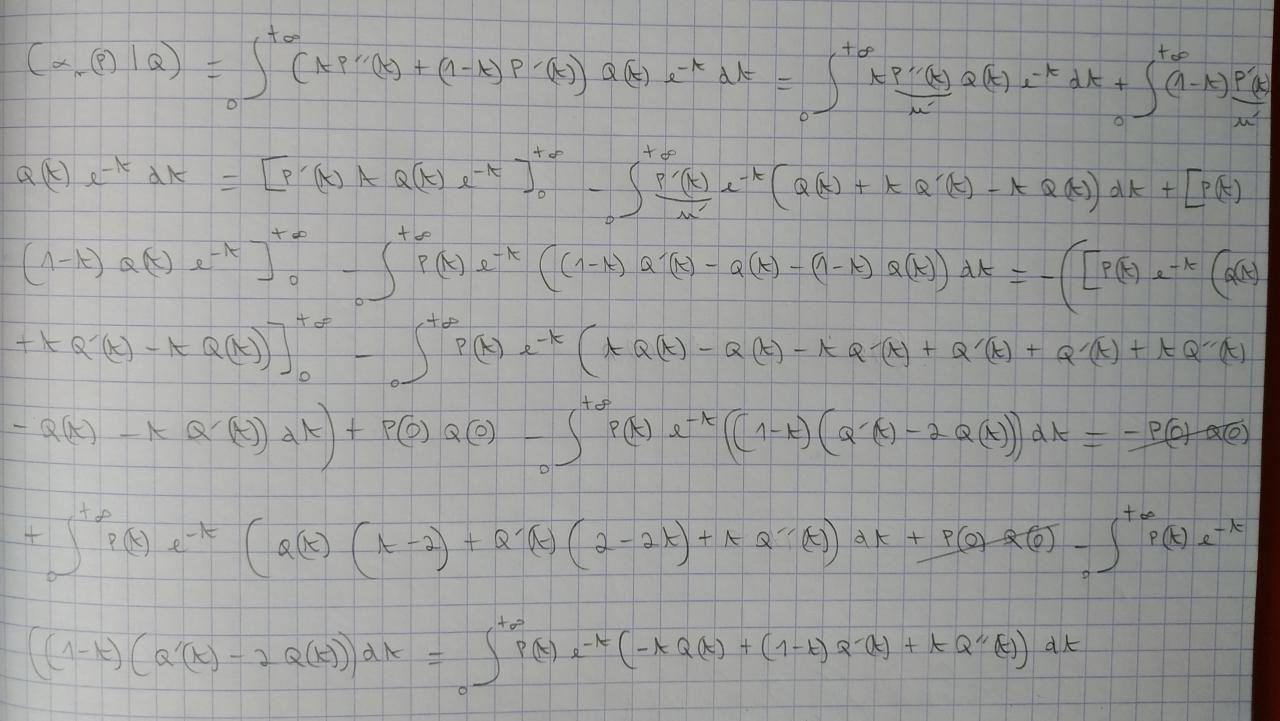 (α_n(P) | Q) = ∫₀^{+∞} (t P''(t) + (1-t) P'(t)) Q(t) e^{-t} dt = ∫₀^{+∞} t P''(t) Q(t) e^{-t} dt + ∫₀^{+∞} (1-t) P'(t)
u' u'
Q(t) e^{-t} dt = [P'(t) t Q(t) e^{-t}]₀^{+∞} - ∫₀^{+∞} P'(t) e^{-t} (Q(t) + t Q'(t) - t Q(t)) dt + [P(t)
u'
(1-t) Q(t) e^{-t}]₀^{+∞} - ∫₀^{+∞} P(t) e^{-t} ((1-t) Q'(t) - Q(t) - (1-t) Q(t)) dt = - ([P(t) e^{-t} (Q(t)
+ t Q'(t) - t Q(t))]₀^{+∞} - ∫₀^{+∞} P(t) e^{-t} (t Q(t) - Q(t) - t Q'(t) + Q'(t) + Q'(t) + t Q''(t)
- Q(t) - t Q'(t)) dt) + P(0) Q(0) - ∫₀^{+∞} P(t) e^{-t} ((1-t) (Q'(t) - 2 Q(t))) dt = - P(0) Q(0)
+ ∫₀^{+∞} P(t) e^{-t} (Q(t) (t-2) + Q'(t) (2-2t) + t Q''(t)) dt + P(0) Q(0) - ∫₀^{+∞} P(t) e^{-t}
((1-t) (Q'(t) - 2 Q(t))) dt = ∫₀^{+∞} P(t) e^{-t} (-t Q(t) + (1-t) Q'(t) + t Q''(t)) dt